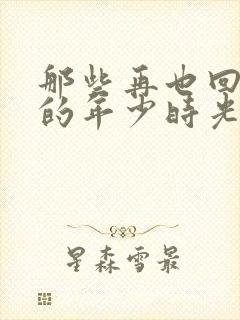 那些再也回
的年少時光
星森雪最